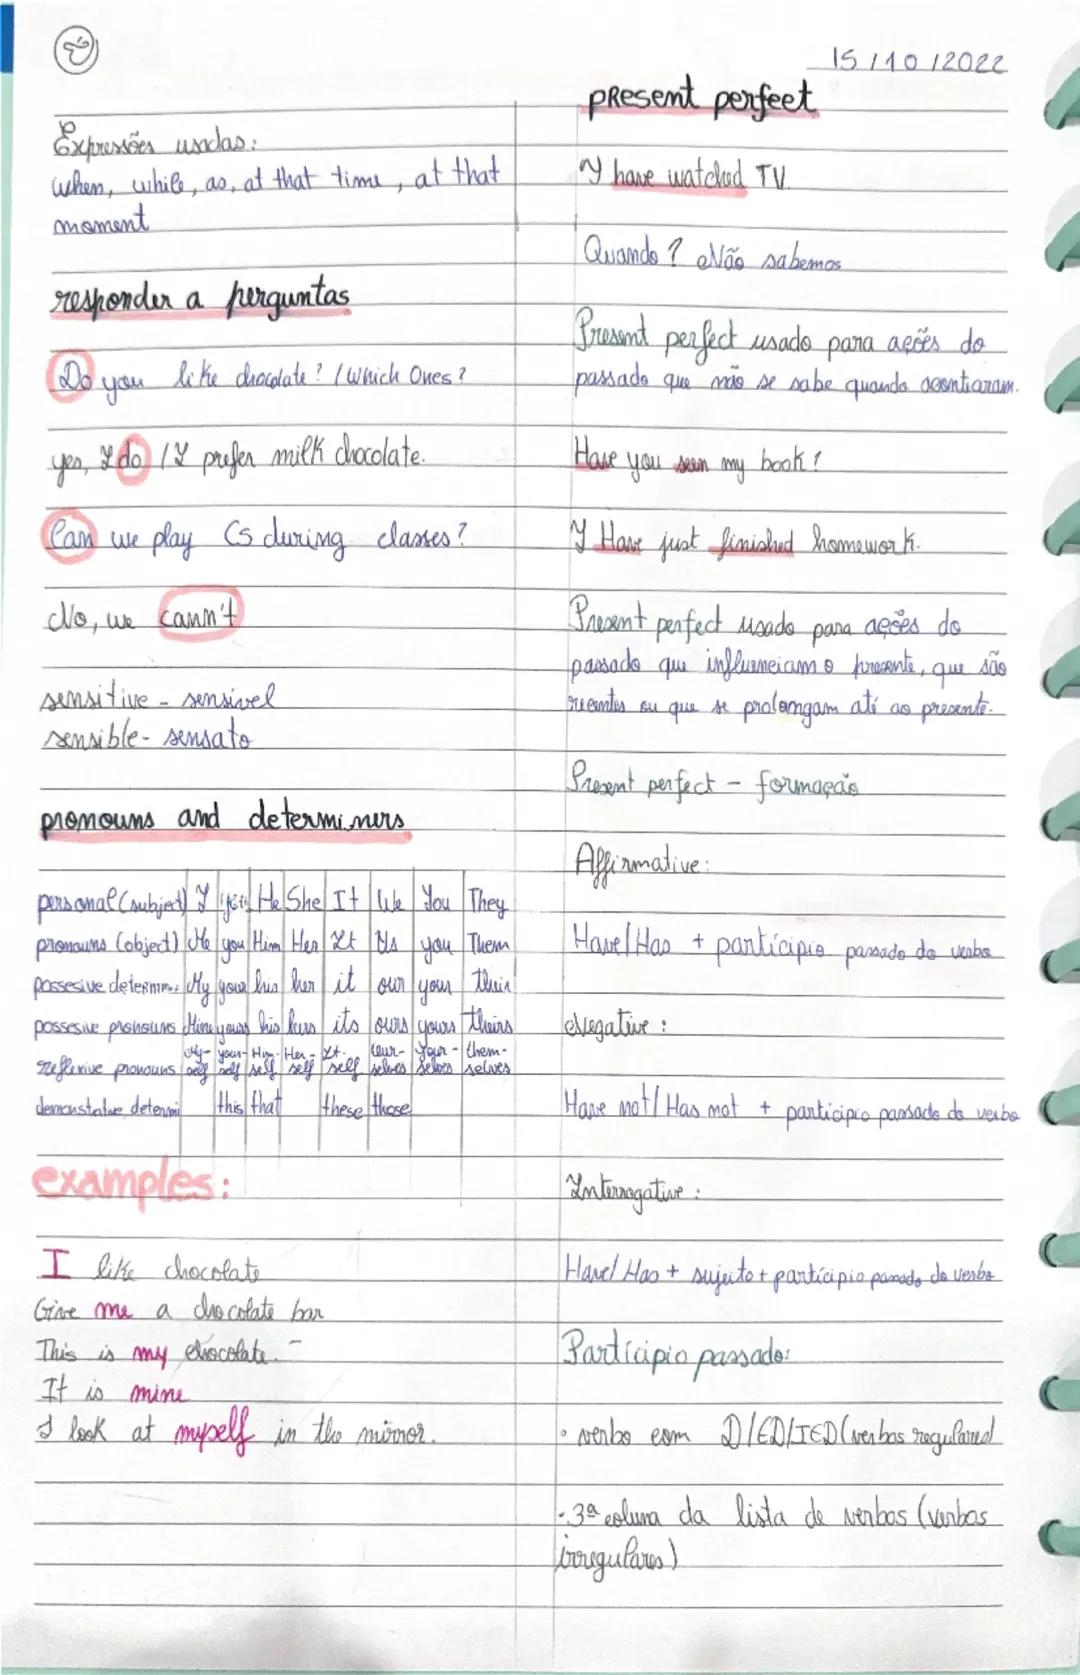 15/10/2022
Expressões usadas:
when, while, as, at that time, at that
moment
responder a perguntas
Do you like chocolate? / Which Ones?
yes, I do / I prefer milk chocolate.
Can we play CS during classes?
No, we cann't
sensitive - sensível
sensible - sensato
pronouns and determiners
personal (subject) I you He She It We You They
pronouns (object) Me you Him Her It Us you Them
possesive determ. My your his her it our your their
possesive pronouns Mine yours his hers its ours yours theirs
reflexive pronouns My-self your-self Him-self Her-self It-self Our-selves Your-selves them-selves
demonstative determi this that these those
examples:
I like chocolate
Give me a chocolate bar
This is my chocolate.
It is mine
I look at myself in the mirror.
present perfect
I have watched TV.
Quando? Não sabemos
Present perfect usado para ações do
passado que não se sabe quando acontiaram.
Have you seen my book?
I Have just finished homework.
Present perfect usado para ações do
passado que influenciam o presente, que são
recentes ou que se prolongam até ao presente.
Present perfect - formação
Affirmative:
Have/Has + particípio passado do verbo
Negative:
Have not/Has not + particípio passado do verbo
Interrogative:
Have/Has + sujeito + particípio passado do verbo
Particípio passado:
• verbo com D/ED/IED (verbos regulares)
• 3ª coluna da lista de verbos (verbos
irregulares)